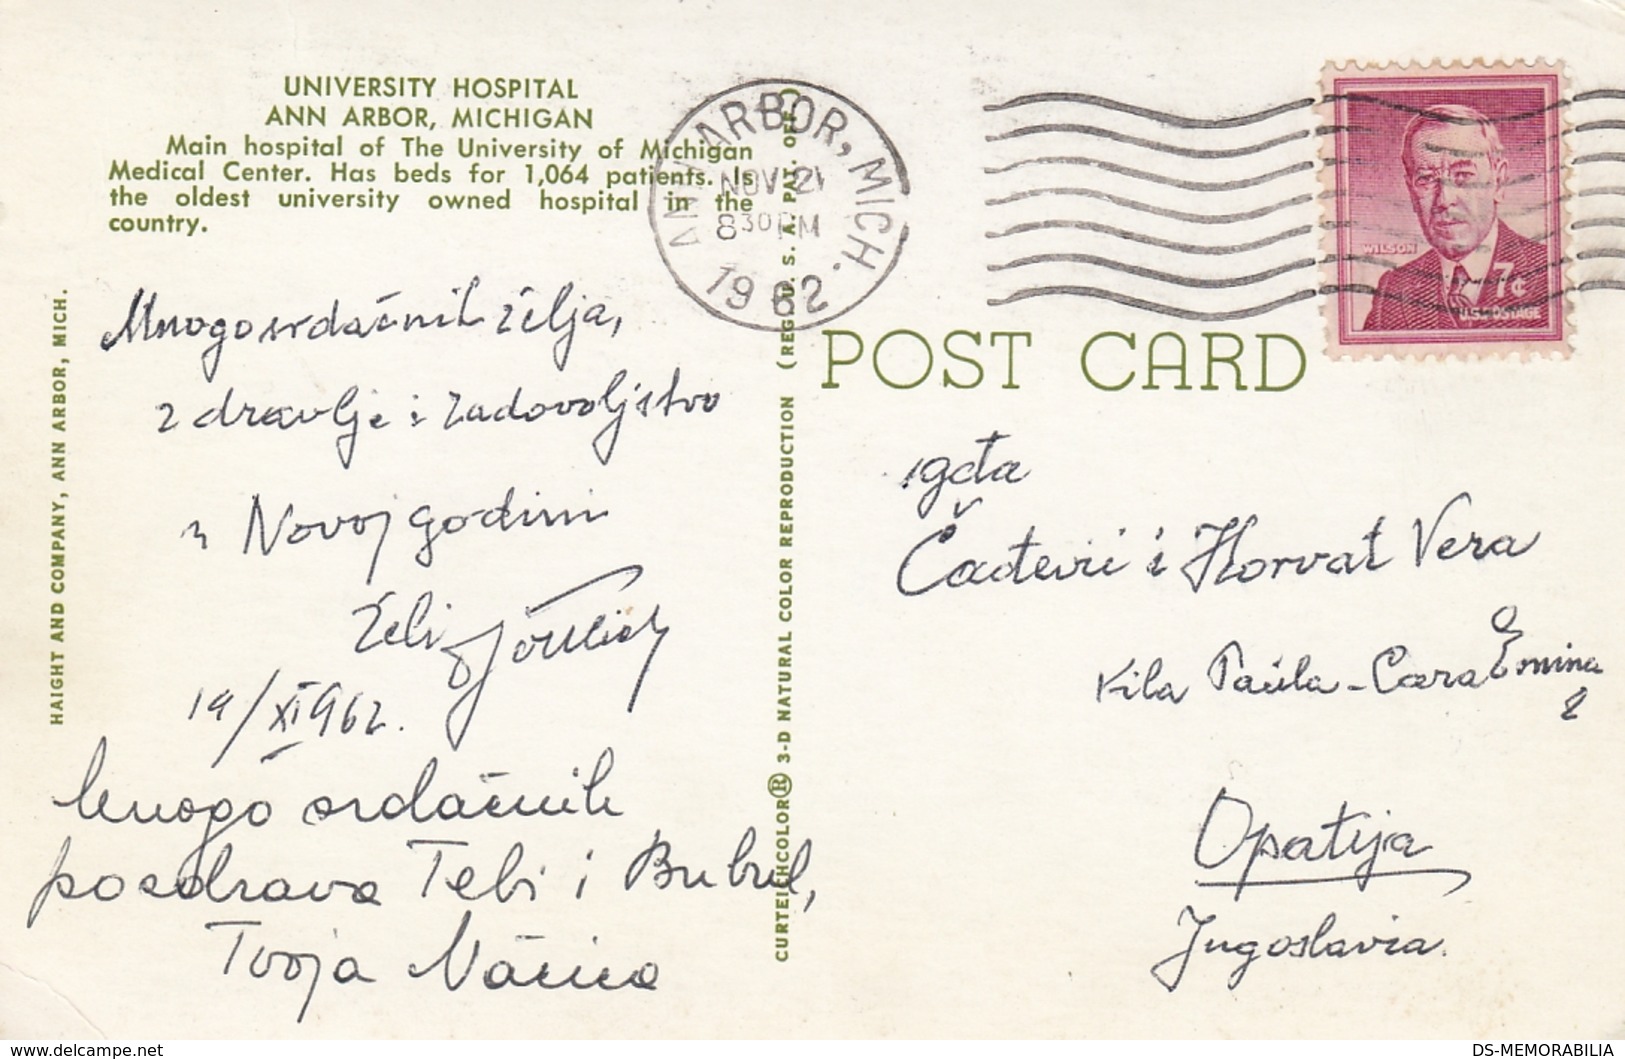 UNIVERSITY HOSPITAL
ANN ARBOR, MICHIGAN
Main hospital of The University of Michigan
Medical Center. Has beds for 1,064 patients. Is
the oldest university owned hospital in the
country.
HAIGHT AND COMPANY, ANN ARBOR, MICH.
Mnogo srdačnih želja,
zdravlje i zadovoljstvo
u Novoj godini
želi
19/XI 962.
Mnogo srdačnih
pozdrava Tebi i
Tvoja
CURTEICHCOLOR® 3-D NATURAL COLOR REPRODUCTION (REG. U. S. A. PAT. OFF.)
ANN ARBOR, MICH.
NOV 21
8 30 PM
1962
WILSON
7¢
U.S. POSTAGE
POST CARD
i Horvat Vera
Vila Paula - Cara Emina
2
Opatija
Jugoslavia.
DS-MEMORABILIA